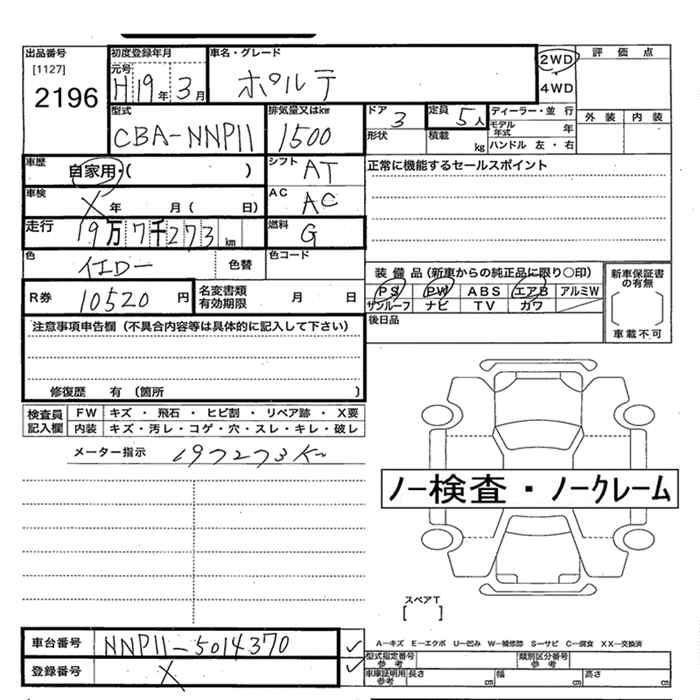 出品番号 初度登録年月 車名・グレード 2WD 評価点
[1127] 元号
2196 H19年 3月 ポルテ 4WD
型式 排気量又はkw ドア 定員 ディーラー・並行 外装 内装
CBA-NNP11 1500 3 5人 モデル年式 年
形状 積載 kg ハンドル 左・右
車歴 自家用・( ) シフト AT 正常に機能するセールスポイント
車検 X 年 月( 日) AC AC
走行 19万7千273km 燃料 G
色 イエロー 色替 色コード
装備品(新車からの純正品に限り○印) 新車保証書の有無
R券 10520円 名変書類有効期限 月 日 PS PW ABS エアB アルミW
サンルーフ ナビ TV カワ 車載不可
注意事項申告欄(不具合内容等は具体的に記入して下さい) 後日品
修復歴 有(箇所 )
検査員記入欄 FW キズ・飛石・ヒビ割・リペア跡・X要
内装 キズ・汚レ・コゲ・穴・スレ・キレ・破レ
メーター指示 197273K
ノー検査・ノークレーム
スペアT
[ ]
車台番号 NNP11-5014370 ✓ A-キズ E-エクボ U-凹み W-補修跡 S-サビ C-腐食 XX-交換済
型式指定番号 参考 類別区分番号 参考
登録番号 X ✓ 車庫証明用 参考 長さ cm 幅 cm 高さ cm